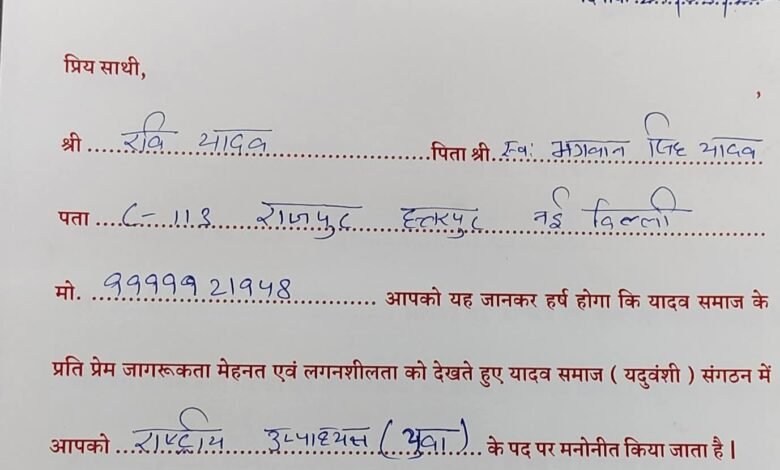 प्रिय साथी,
श्री ..... रवि यादव ..... पिता श्री. स्व: भगवान सिंह यादव
पता .... C-113 राजपुर छत्तरपुर नई दिल्ली
मो. ..... आपको यह जानकर हर्ष होगा कि यादव समाज के
प्रति प्रेम जागरूकता मेहनत एवं लगनशीलता को देखते हुए यादव समाज ( यदुवंशी ) संगठन में
आपको ... राष्ट्रीय उपाध्यक्ष (युवा) ... के पद पर मनोनीत किया जाता है।